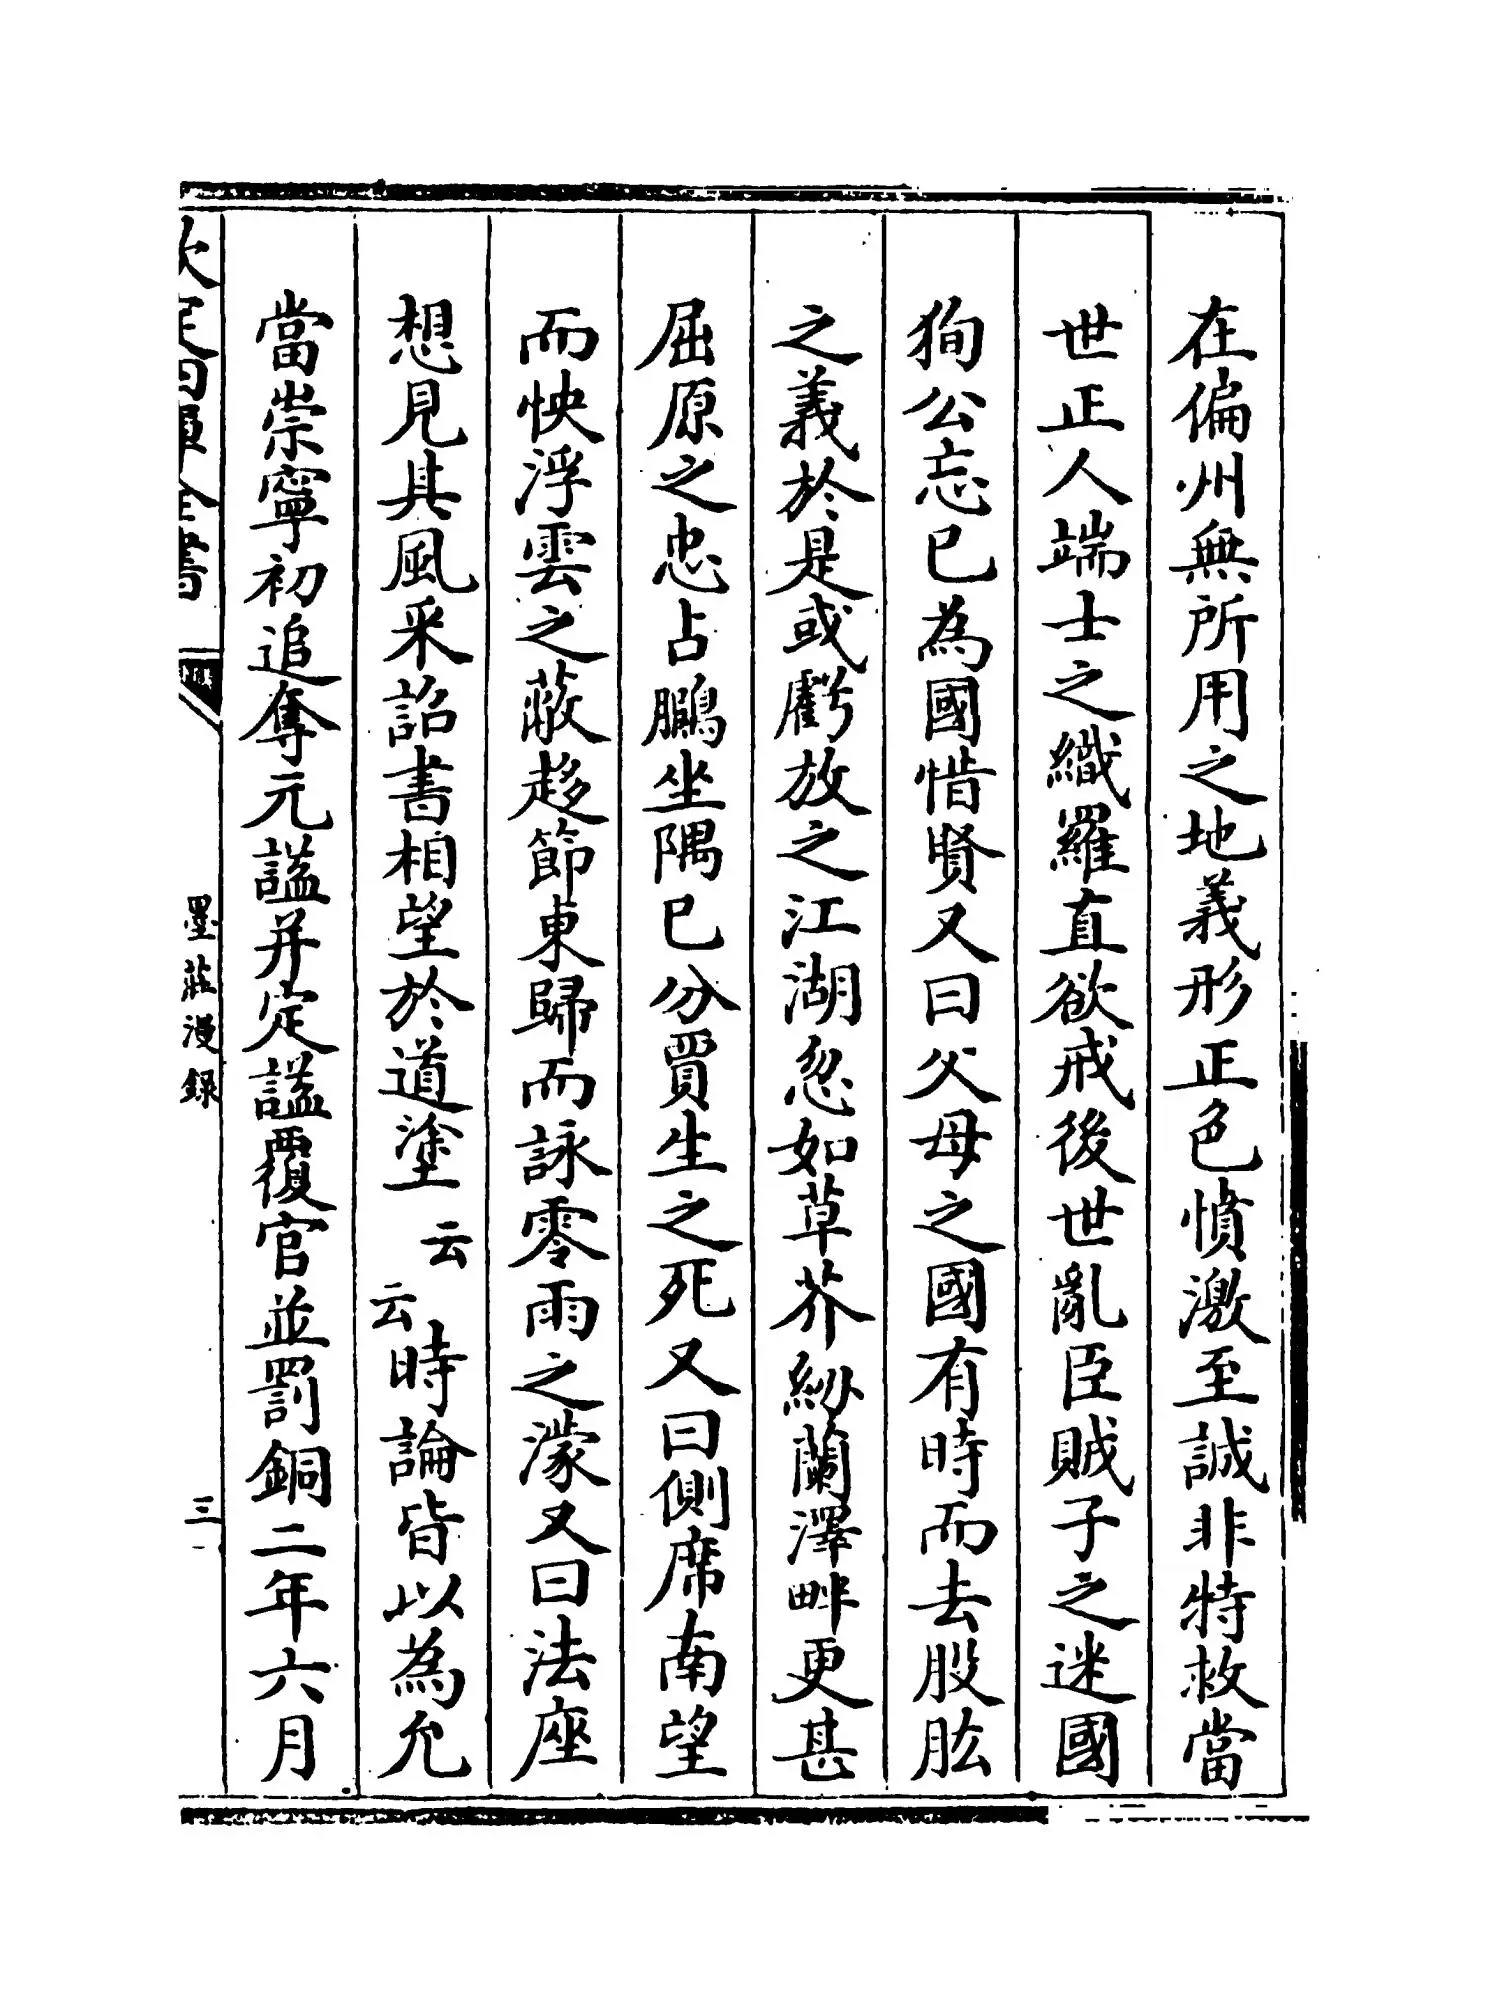 在偏州無所用之地義形正色憤激至誠非特救當
世正人端士之織羅直欲戒後世亂臣賊子之迷國
狥公忘已為國惜賢又曰父母之國有時而去股肱
之義於是或虧放之江湖忽如草芥紉蘭澤畔更甚
屈原之忠占鵩坐隅已分賈生之死又曰側席南望
而怏浮雲之蔽趍節東歸而詠零雨之濛又曰法座
想見其風采詔書相望於道塗云云時論皆以為允
當崇寧初追奪元謚并定謚覆官並罰銅二年六月
欽定四庫全書
墨莊漫録
三